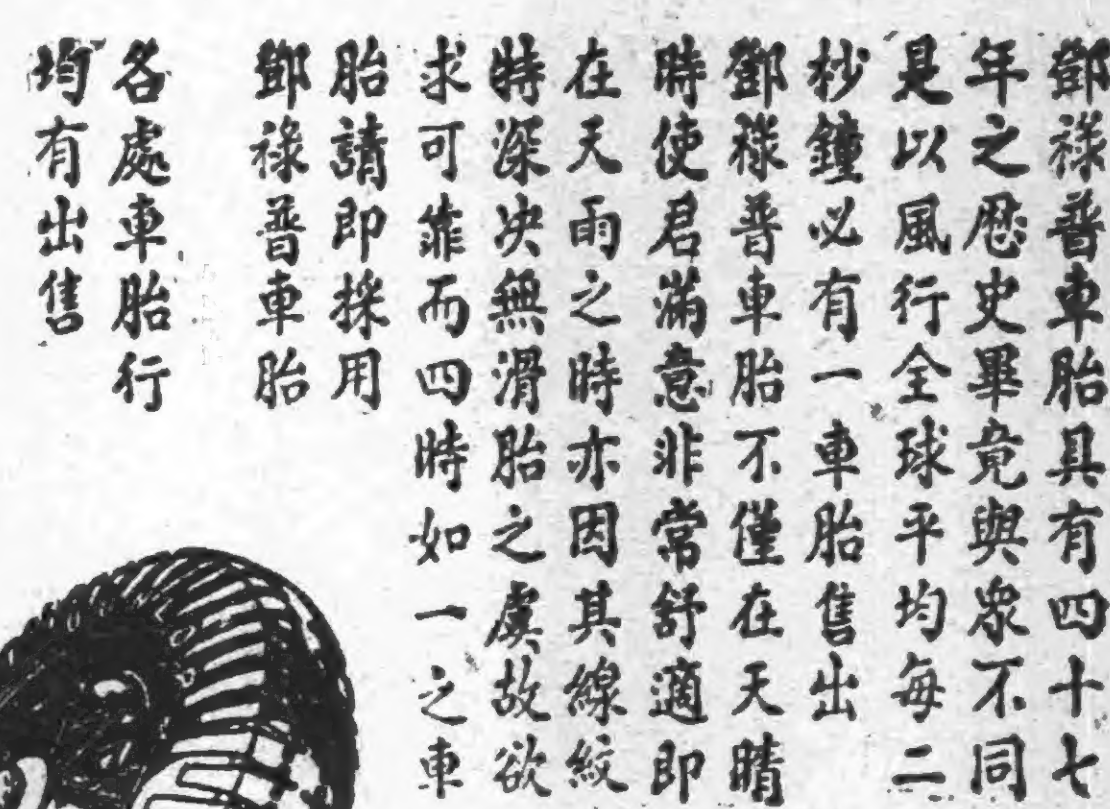 鄧祿普車胎具有四十七
年之歷史畢竟與衆不同
是以風行全球平均每二
秒鐘必有一車胎售出
鄧祿普車胎不僅在天晴
時使君滿意非常舒適即
在天雨之時亦因其線紋
特深决無滑胎之虞故欲
求可靠而四時如一之車
胎請即採用
鄧祿普車胎
各處車胎行
均有出售